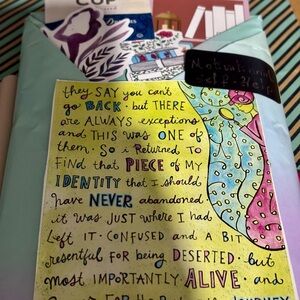 CUP
Motivational
they SAY you can't
go BACK · but THERE
are ALWAYS exceptions
and THIS was ONE of
them. So i Returned TO
FIND that PIECE of MY
IDENTITY that I should
have NEVER abandoned
it was JUST where I had
Left IT · CONFUSED and A BIT
resentful FOR being DESERTED · but
most IMPORTANTLY ALIVE · and